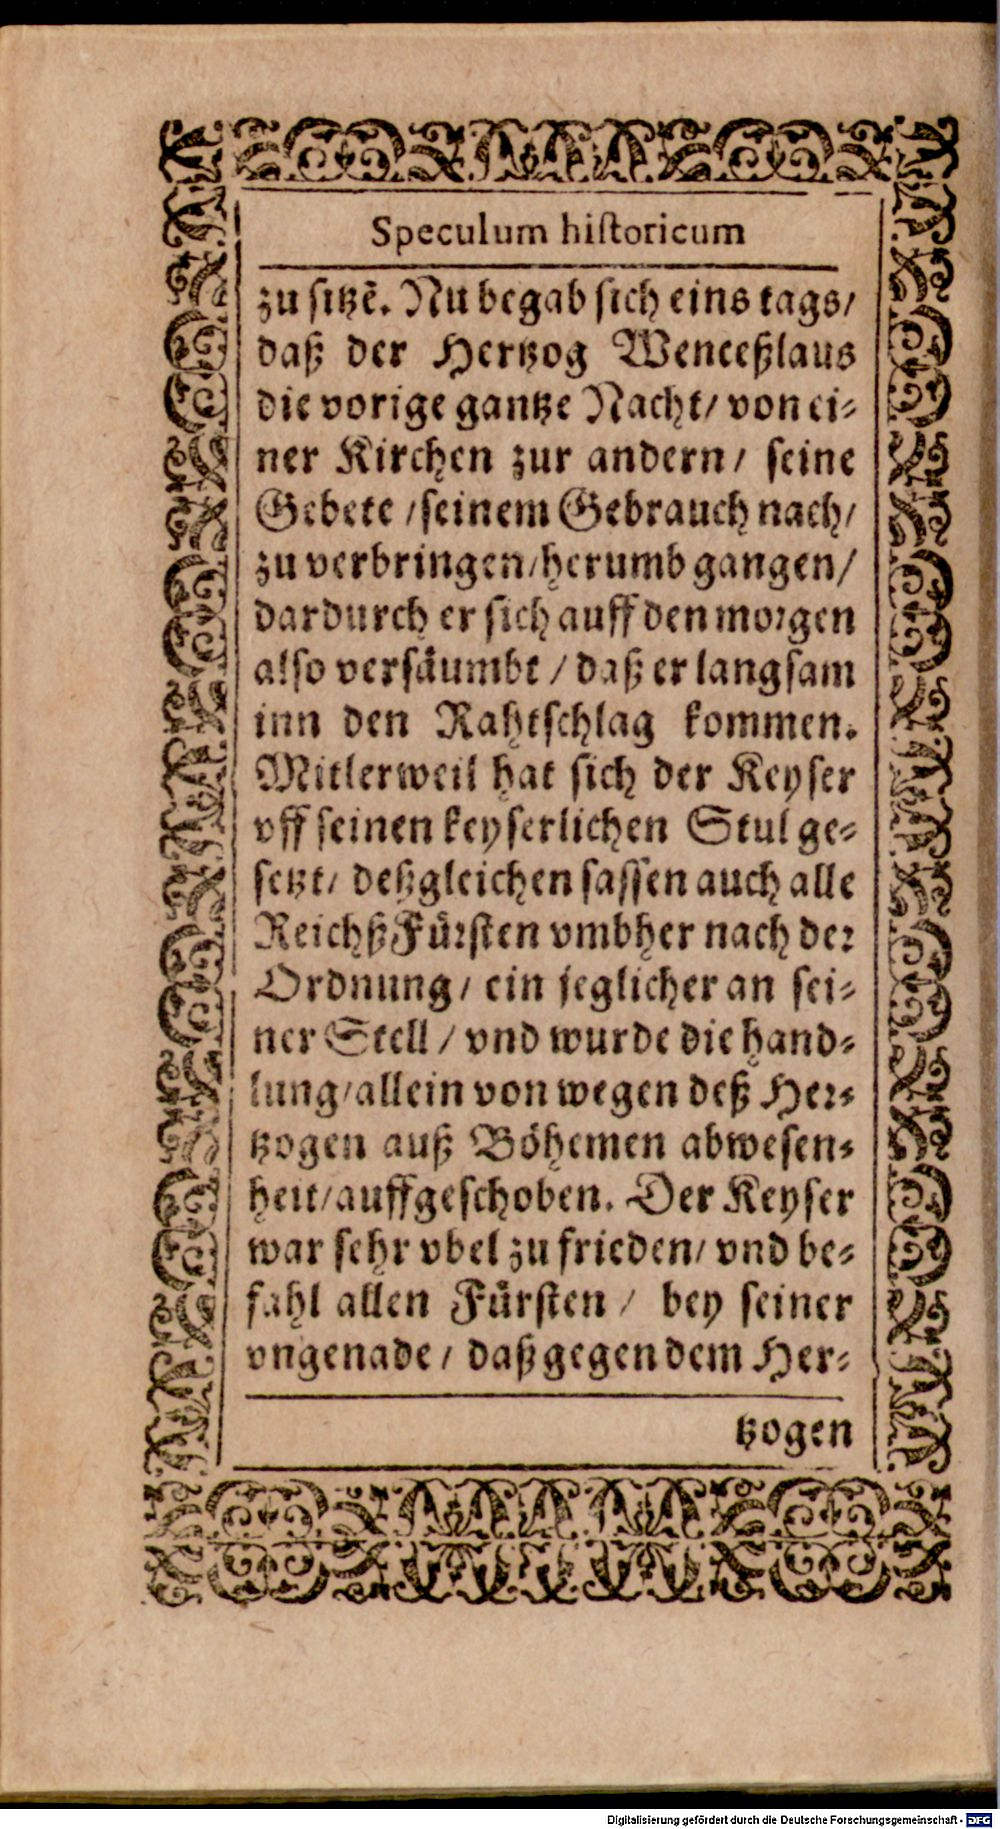 Speculum hiſtoricum
zu ſitzẽ. Nu begab ſich eins tags/
daß der Hertzog Wenceßlaus
die vorige gantze Nacht/ von ei⸗
ner Kirchen zur andern/ ſeine
Gebete /ſeinem Gebrauch nach/
zu verbringen/herumb gangen/
dardurch er ſich auff den morgen
alſo verſaͤumbt / daß er langſam
inn den Rahtſchlag kommen.
Mitlerweil hat ſich der Keyſer
vff ſeinen keyſerlichen Stul ge⸗
ſetzt/ deßgleichen ſaſſen auch alle
ReichßFuͤrſten vmbher nach der
Ordnung/ ein jeglicher an ſei⸗
ner Stell / vnd wurde die hand⸗
lung/allein von wegen deß Her⸗
tzogen auß Boͤhemen abweſen⸗
heit/auffgeſchoben. Der Keyſer
war ſehr vbel zu frieden/ vnd be⸗
fahl allen Fuͤrſten / bey ſeiner
vngenade / daß gegen dem Her⸗
tzogen
Digitalisierung gefördert durch die Deutsche Forschungsgemeinschaft - DFG